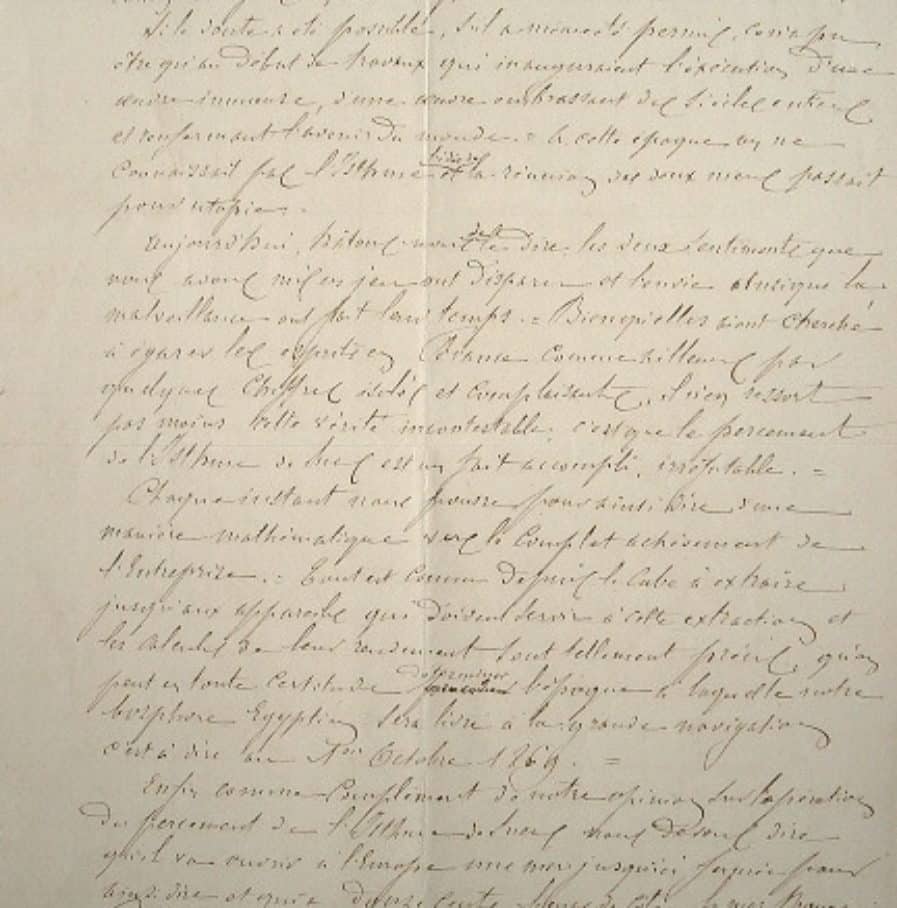 Si le doute a été possible, s'il a moments permis, ce n'a pu
être qu'au début de travaux qui inauguraient l'exécution d'une
œuvre immense, d'une œuvre embrassant des siècles entiers
et renfermant l'avenir du monde. = à cette époque on ne
connaissait pas l'Isthme et l'idée de la réunion des deux mers passait
pour utopie. -
Aujourd'hui, hâtons-nous de le dire, les deux sentiments que
nous avons mis en jeu ont disparu et l'envie ainsi que la
malveillance ont fait leur temps. = Bien qu'elles aient cherché
à égarer les esprits en France comme ailleurs par
quelques chiffres isolés et complaisants, il n'en ressort
pas moins cette vérité incontestable, c'est que le percement
de l'Isthme de Suez est un fait accompli, irréfutable. =
Chaque instant nous pousse pour ainsi dire d'une
manière mathématique vers le complet achèvement de
l'Entreprise. = Tout est connu depuis le cube à extraire
jusqu'aux appareils qui doivent servir à cette extraction et
les calculs de leur rendement sont tellement précis, qu'on
peut en toute certitude déterminer l'époque à laquelle notre
bosphore Egyptien sera livré à la grande navigation
c'est à dire au 1er Octobre 1869. =
Enfin comme complément de notre opinion sur l'opération
du percement de l'Isthme de Suez nous devons dire
qu'il va ouvrir à l'Europe une mer jusqu'ici fermée pour
ainsi dire et qui a douze cents lieues de côté, la mer Rouge